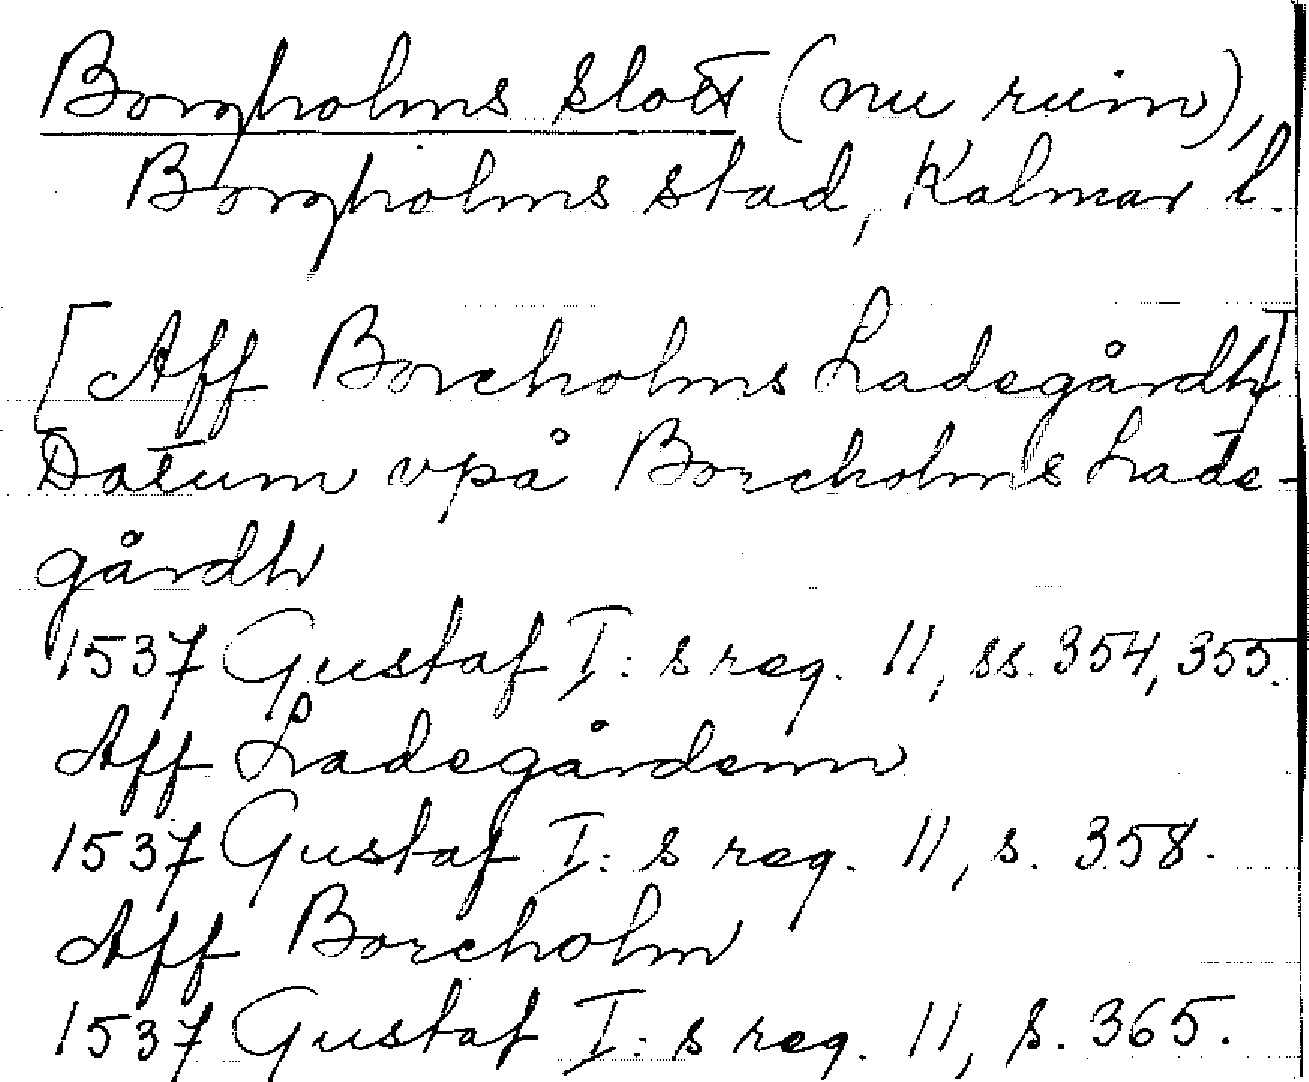 Borgholms slott (nu ruin),
Borgholms stad, Kalmar l.
[Aff Borcholms Ladegårdh]
Datum vpå Borcholms Lade-
gårdh
1537 Gustaf I:s reg. 11, ss. 354, 355.
Aff Ladegårdenn
1537 Gustaf I:s reg. 11, s. 358.
Aff Borcholm
1537 Gustaf I:s reg. 11, s. 365.